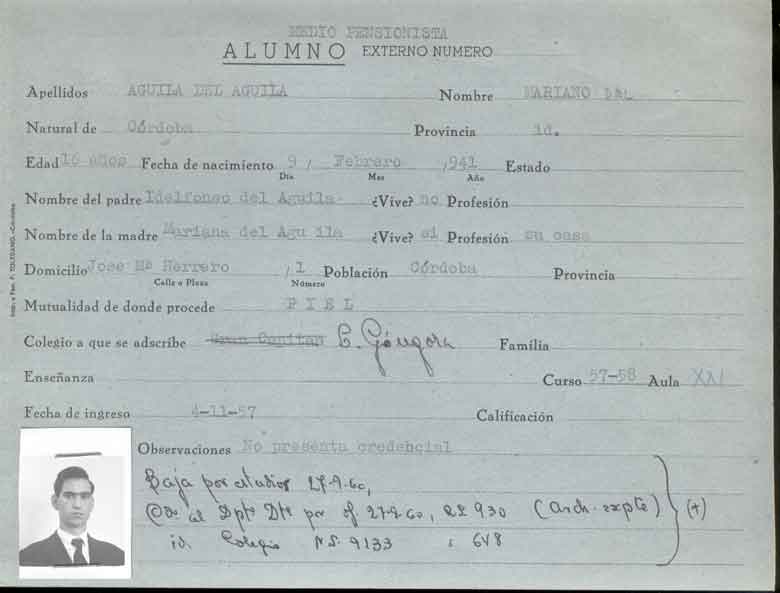 MEDIO PENSIONISTA
ALUMNO EXTERNO NUMERO
Apellidos AGUILA DEL AGUILA Nombre MARIANO DEL
Natural de Córdoba Provincia id.
Edad 16 años Fecha de nacimiento 9, Febrero ,941 Estado
Día Mes Año
Nombre del padre Idelfonso del Aguila ¿Vive? no Profesión
Nombre de la madre Mariana del Agu ila ¿Vive? si Profesión su casa
Domicilio Jose Mª Herrero ,1 Población Córdoba Provincia
Calle o Plaza Número
Mutualidad de donde procede PIEL
Colegio a que se adscribe Gran Capitan C. Góngora Familia
Enseñanza Curso 57-58 Aula XXI
Fecha de ingreso 4-11-57 Calificación
Observaciones No presenta credencial
Baja por estudios 27-9-60,
al Dptº Dte por of. 27-9-60, 930 (Arch. expte) (+)
id. Colegio 9133 : 648